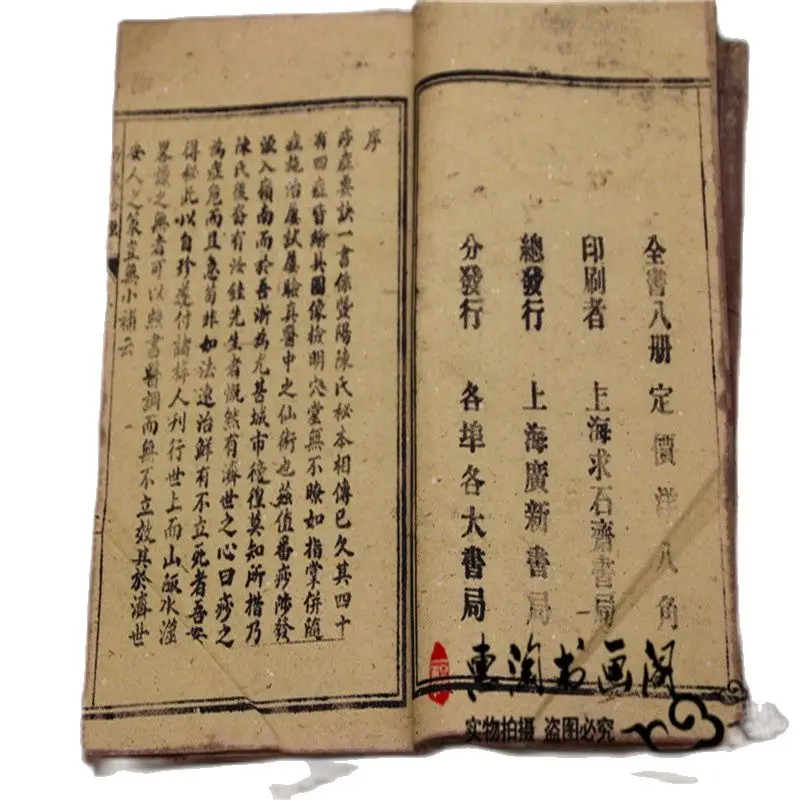 全書八册 定價洋八角
印刷者 上海求石齋書局
總發行 上海廣新書局
分發行 各埠各大書局
序
痧症要訣一書係暨陽陳氏秘本相傳已久其四十
有四症皆繪具圖像檢明穴堂無不瞭如指掌併隨
症施治屢試屢驗真醫中之仙術也茲值番痧陟發
流入嶺南而於吾浙為尤甚城市徬徨莫知所措乃
陳氏後裔有汝銈先生者慨然有濟世之心曰痧之
為症危而且急苟非如法速治鮮有不立死者吾安
得秘此以自珍遂付諸梓人刊行世上而山陬水澨
畧識之無者可以照書醫調而無不立效其於濟世
安人之策豈無小補云
惠淘书画阁
实物拍摄 盗图必究